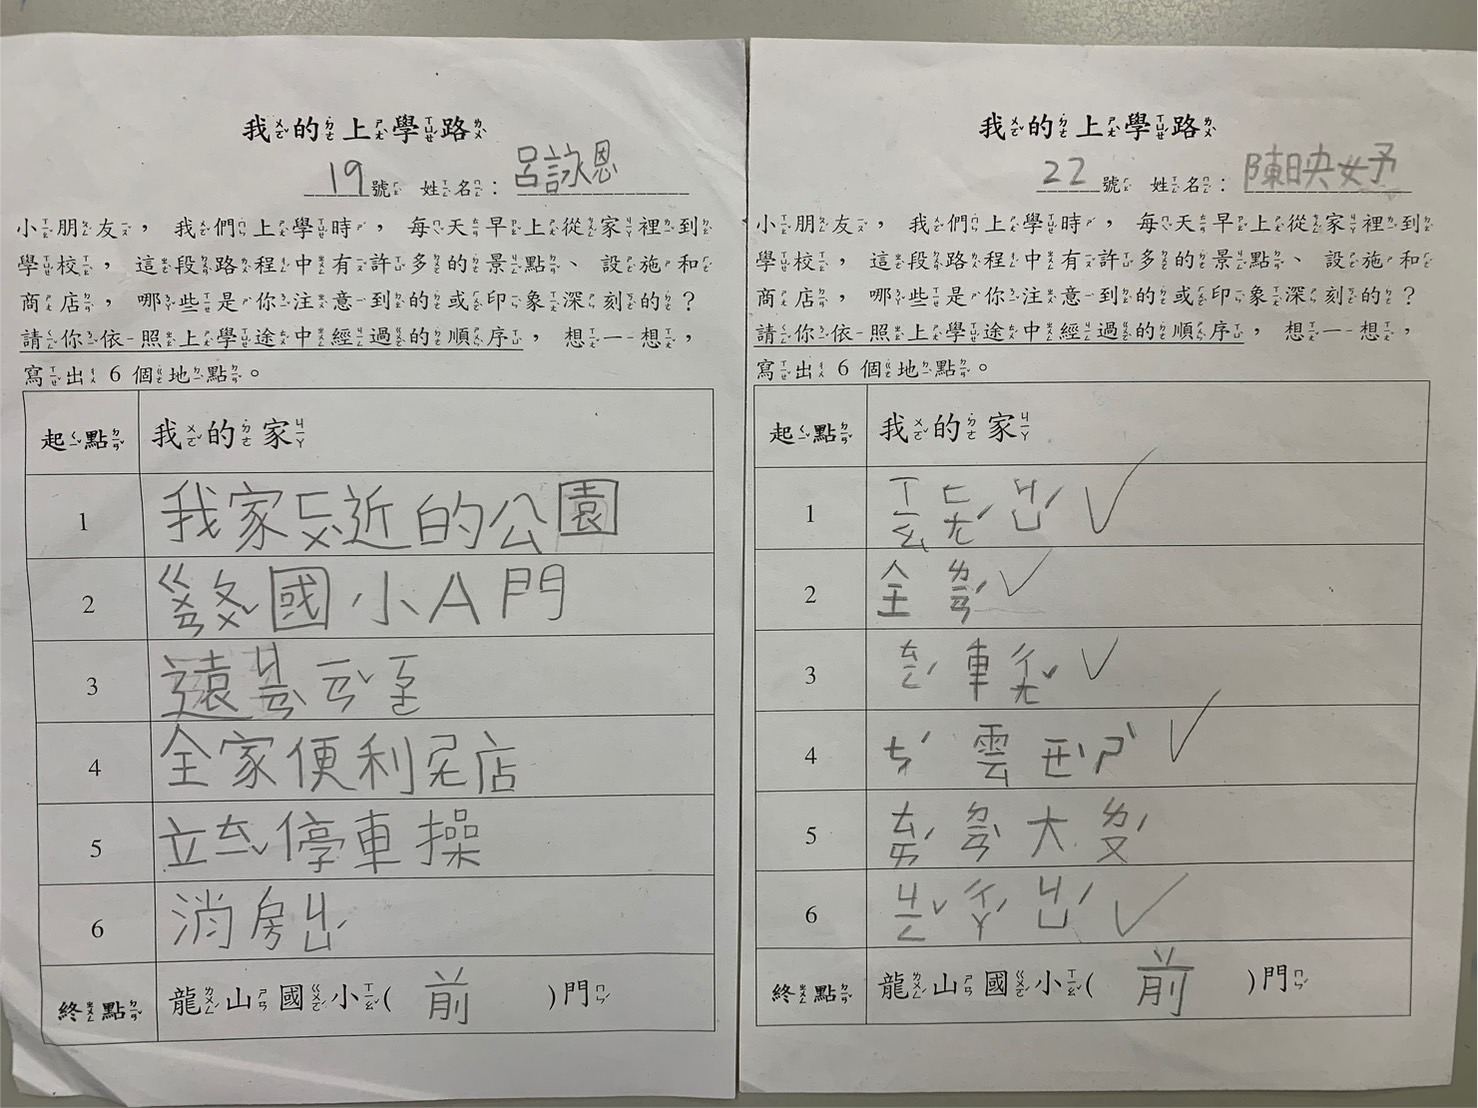 我的上學路
19號 姓名：呂詠恩
小朋友，我們上學時，每天早上從家裡到
學校，這段路程中有許多的景點、設施和
商店，哪些是你注意到的或印象深刻的？
請你依照上學途中經過的順序，想一想，
寫出 6 個地點。
起點 我的家
1 我家ㄈㄨˋ近的公園
2 國小A門
3 遠ㄐㄧㄢˋ ㄧㄢˇ
4 全家便利店
5 立ㄊㄧˇ停車操
6 消房ㄐㄩˊ
終點 龍山國小(前)門
我的上學路
22號 姓名：陳映妤
小朋友，我們上學時，每天早上從家裡到
學校，這段路程中有許多的景點、設施和
商店，哪些是你注意到的或印象深刻的？
請你依照上學途中經過的順序，想一想，
寫出 6 個地點。
起點 我的家
1 ㄒㄧㄠ ㄈㄤˊ ㄐㄩˊ
2 全ㄌㄧㄢˊ
3 ㄊㄧㄥˊ車ㄔㄤˇ
4 ㄘˊ雲ㄕˋ
5 大ㄌㄡˊ
6 ㄐㄧㄥˇ ㄔㄚˊ ㄐㄩˊ
終點 龍山國小(前)門